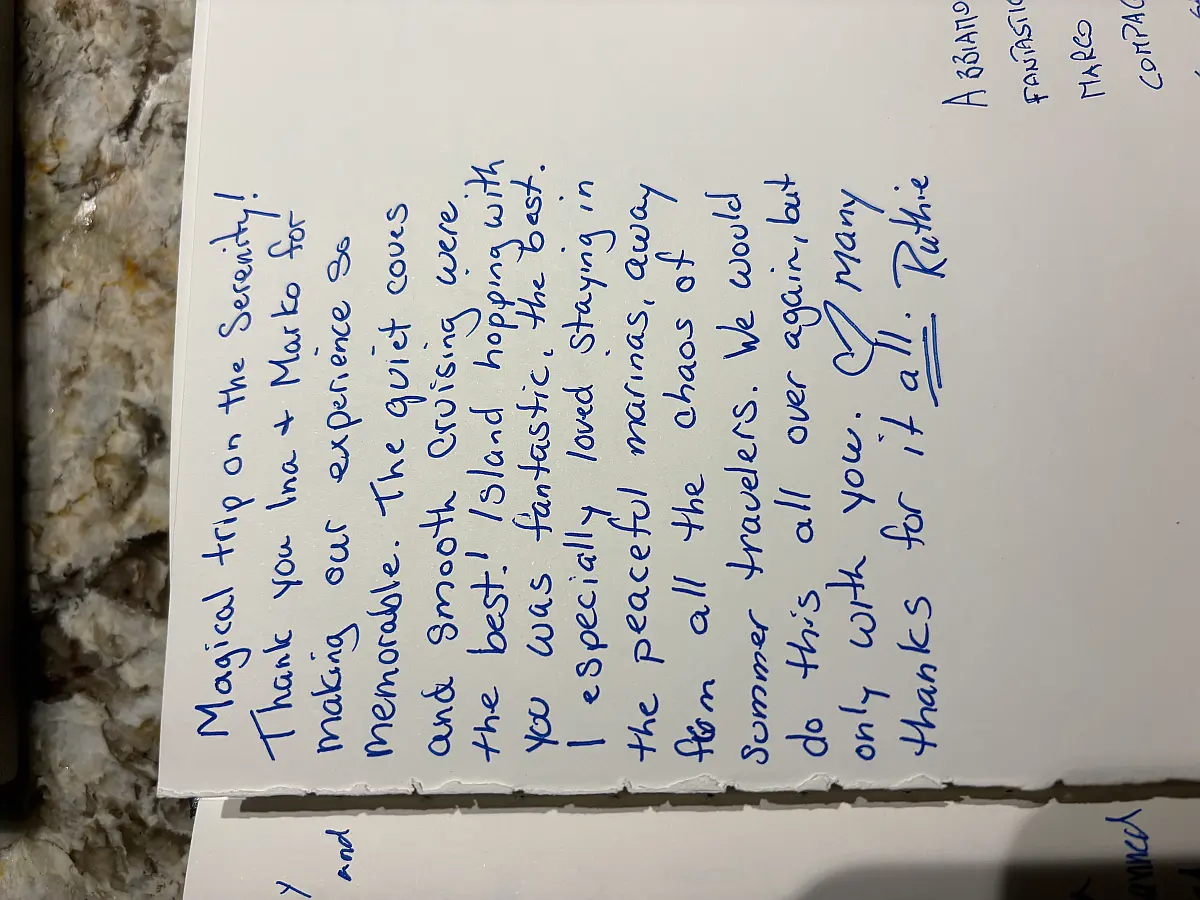 Magical trip on the Serenity!
Thank you Ina + Marko for
making our experience so
memorable. The quiet coves
and smooth cruising were
the best! Island hopping with
you was fantastic, the best.
I especially loved staying in
the peaceful marinas, away
from all the chaos of
summer travelers. We would
do this all over again, but
only with you. ♡ Many
thanks for it all. Ruthie
ABBIAMO
MARCO
y
and